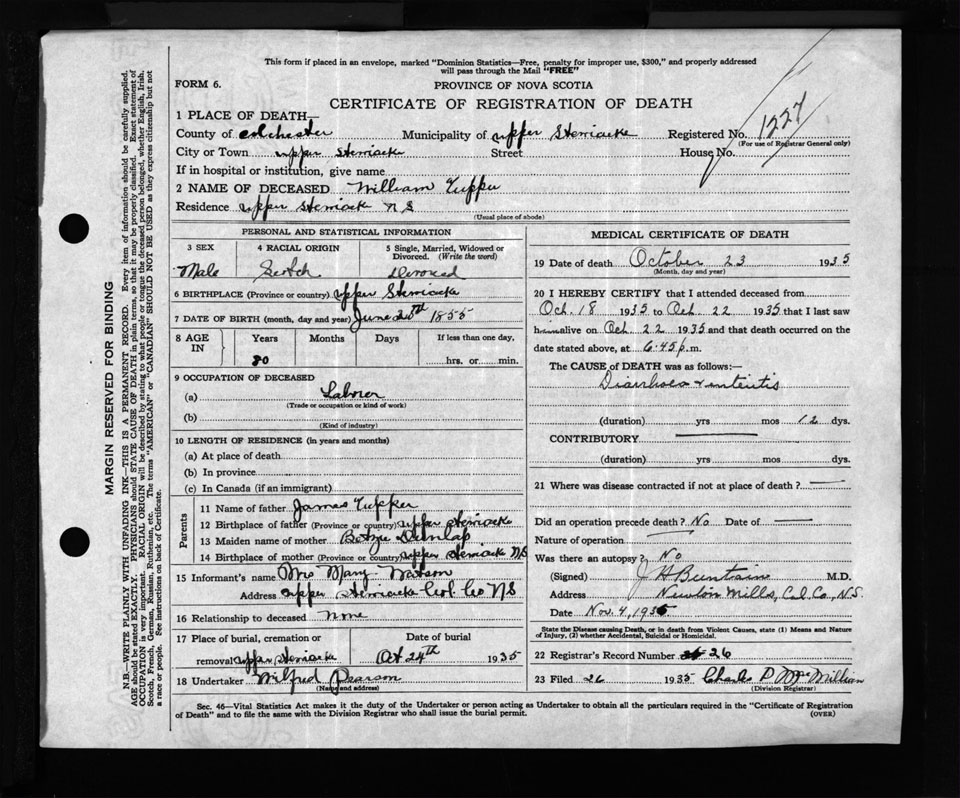 This form if placed in an envelope, marked "Dominion Statistics—Free, penalty for improper use, $300," and properly addressed
will pass through the Mail "FREE"
FORM 6.
PROVINCE OF NOVA SCOTIA
CERTIFICATE OF REGISTRATION OF DEATH
1227
1 PLACE OF DEATH—
County of Colchester Municipality of Upper Stewiacke Registered No.
(For use of Registrar General only)
City or Town Upper Stewiacke Street House No.
If in hospital or institution, give name
2 NAME OF DECEASED William Tupper
Residence Upper Stewiack NS
(Usual place of abode)
PERSONAL AND STATISTICAL INFORMATION
3 SEX 4 RACIAL ORIGIN 5 Single, Married, Widowed or Divorced. (Write the word)
Male Scotch
6 BIRTHPLACE (Province or country) Upper Stewiacke
7 DATE OF BIRTH (month, day and year) June 20th 1855
8 AGE IN Years Months Days If less than one day,
80 hrs. or min.
9 OCCUPATION OF DECEASED
(a) Laborer
(Trade or occupation or kind of work)
(b)
(Kind of industry)
10 LENGTH OF RESIDENCE (in years and months)
(a) At place of death
(b) In province
(c) In Canada (if an immigrant)
Parents
11 Name of father James Tupper
12 Birthplace of father (Province or country) Upper Stewiacke
13 Maiden name of mother Dunlap
14 Birthplace of mother (Province or country) Upper Stewiacke NS
15 Informant's name Mrs Mary Watson
Address Upper Stewiacke Col. Co NS
16 Relationship to deceased None
17 Place of burial, cremation or Date of burial
removal Upper Stewiacke Oct 24th 1935
18 Undertaker Wilfred Pearson
(Name and address)
MEDICAL CERTIFICATE OF DEATH
19 Date of death October 23 1935
(Month, day and year)
20 I HEREBY CERTIFY that I attended deceased from
Oct. 18 1935 to Oct. 22 1935 that I last saw
him alive on Oct. 22 1935 and that death occurred on the
date stated above, at 6.45 p.m.
The CAUSE of DEATH was as follows:—
Diarrhoea & enteritis
(duration) yrs mos 12 dys.
CONTRIBUTORY
(duration) yrs mos dys.
21 Where was disease contracted if not at place of death?
Did an operation precede death? No Date of
Nature of operation
Was there an autopsy? No
(Signed) J H Buntain M.D.
Address Newton Mills, Col. Co., N.S.
Date Nov. 4, 1935
State the Disease causing Death, or in death from Violent Causes, state (1) Means and Nature of Injury, (2) whether Accidental, Suicidal or Homicidal.
22 Registrar's Record Number 26
23 Filed 26 1935 Charles D McMillian
(Division Registrar)
Sec. 46—Vital Statistics Act makes it the duty of the Undertaker or person acting as Undertaker to obtain all the particulars required in the "Certificate of Registration
of Death" and to file the same with the Division Registrar who shall issue the burial permit.
(OVER)
MARGIN RESERVED FOR BINDING
N.B.—WRITE PLAINLY WITH UNFADING INK—THIS IS A PERMANENT RECORD. Every item of information should be carefully supplied.
AGE should be stated EXACTLY. PHYSICIANS should STATE CAUSE OF DEATH in plain terms, so that it may be properly classified. Exact statement of
OCCUPATION is very important. RACIAL ORIGIN will be described by stating to what people or tongue the deceased person belonged, whether English, Irish,
Scotch, French, German, Russian, Ruthenian, etc. The terms "AMERICAN" or "CANADIAN" SHOULD NOT BE USED as they express citizenship but not
a race or people. See instructions on back of Certificate.